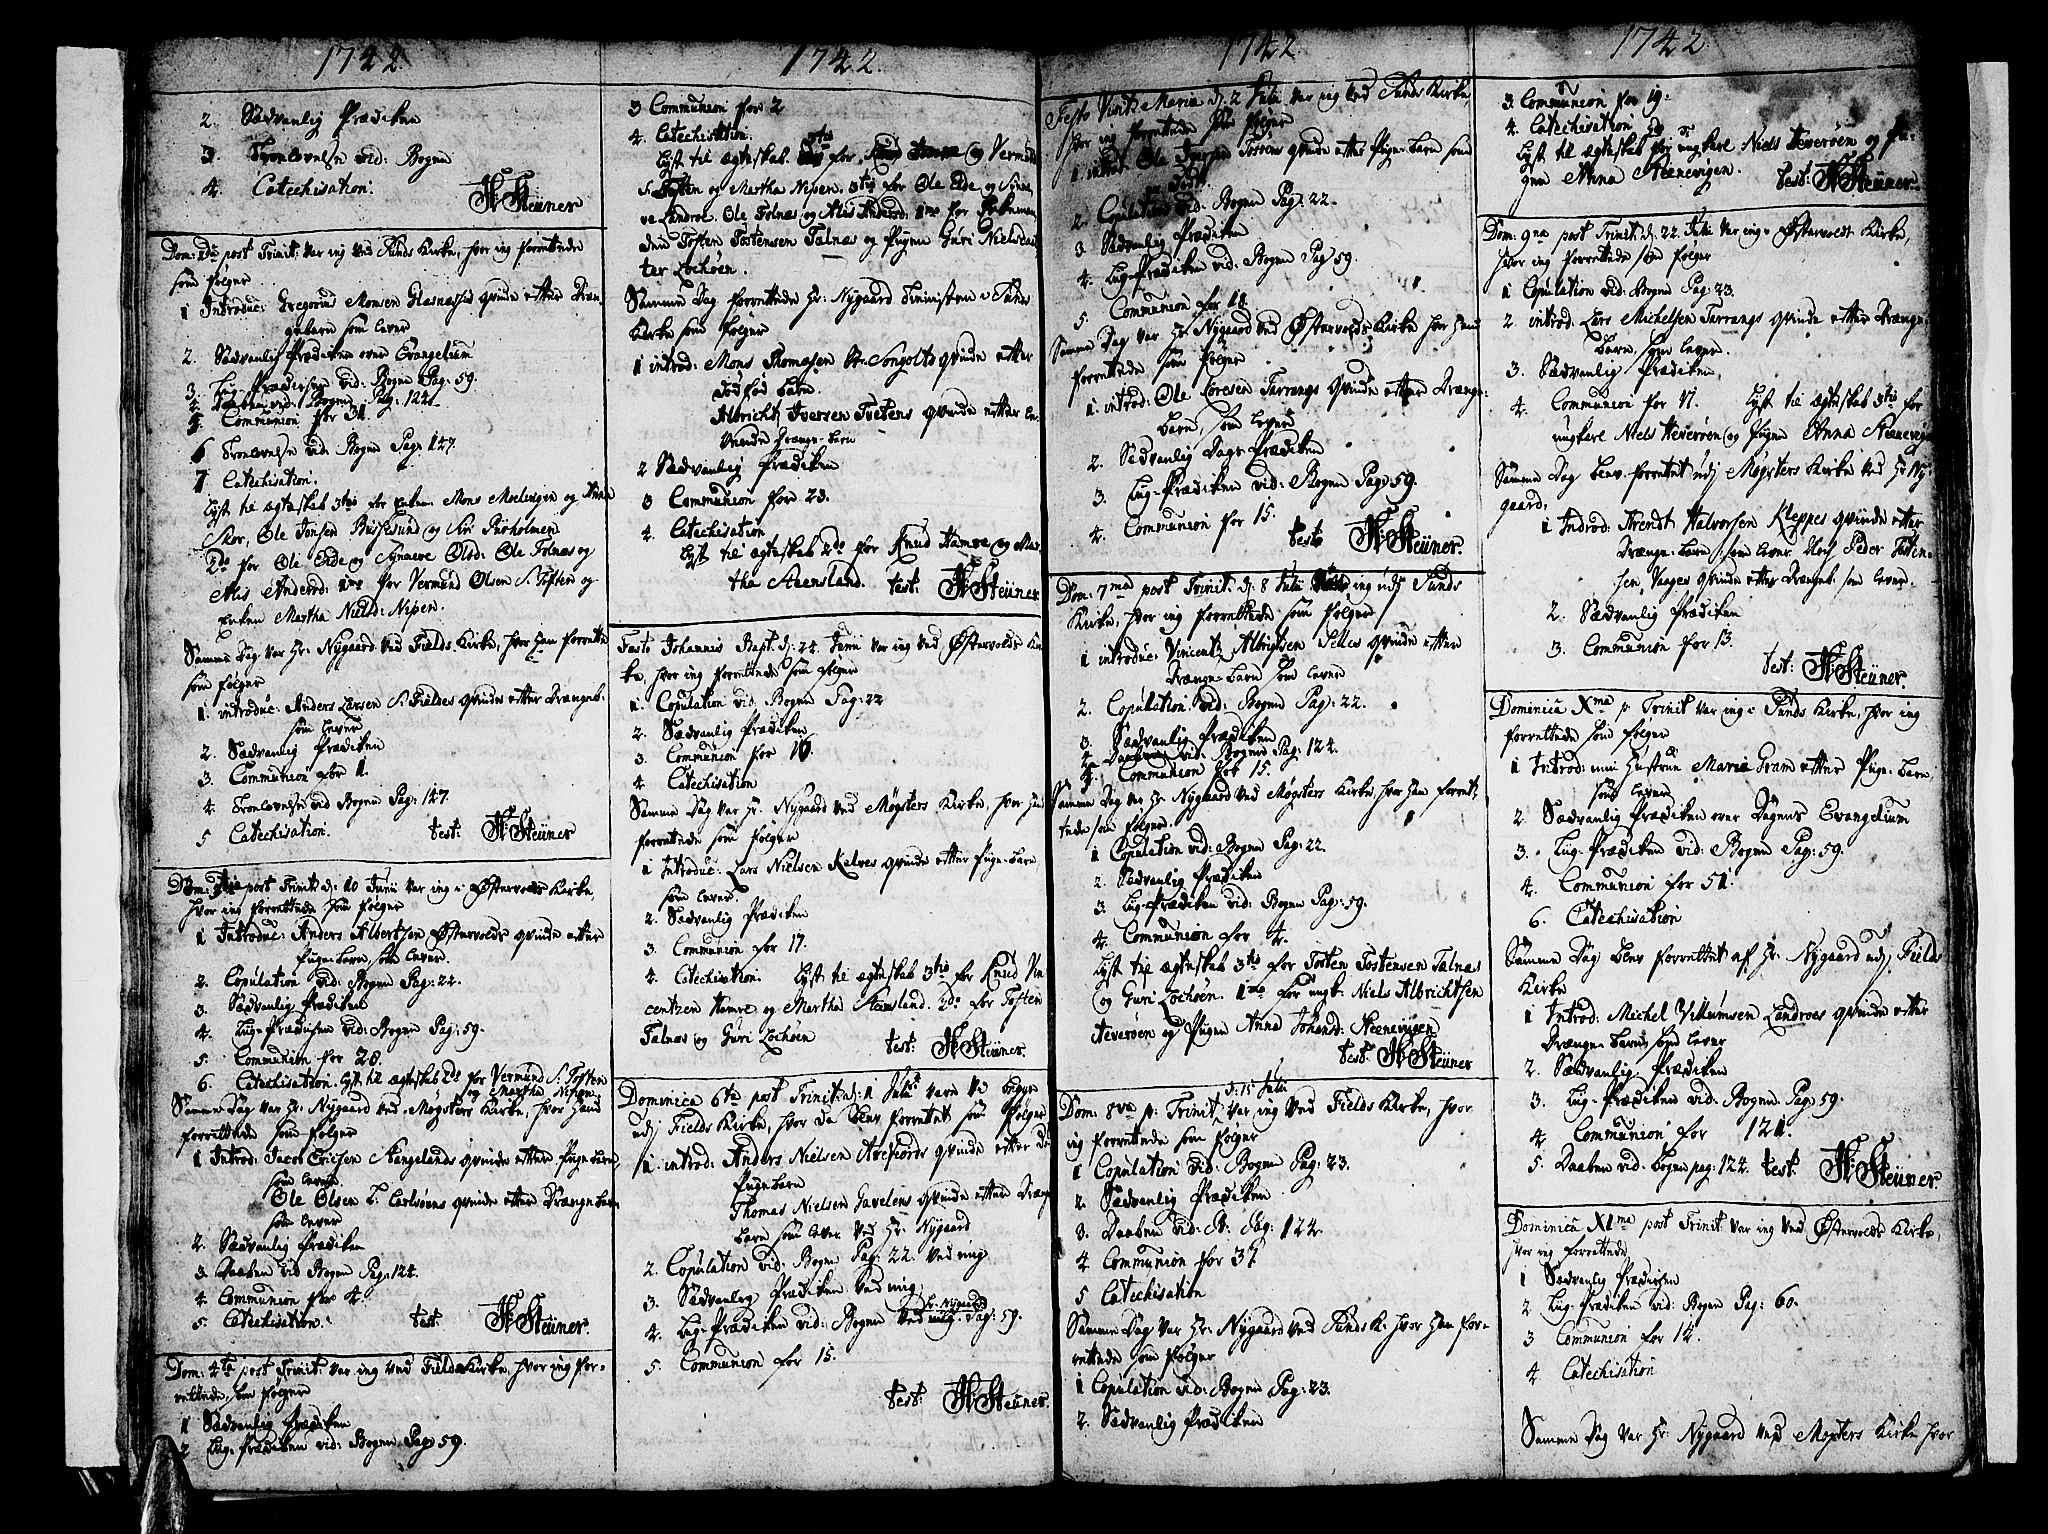 1742
2. Sædvanlig Prædiken
3. Troelovelse vid: Bogen
4. Catechisation.
H: Steüner
Dom: 2da post Trinit: var ieg ved Sunds Kirke, hvor ieg forrettede
som følger
1 Introduc: Gregorius Monsen Glasnæsses qvinde efter Dræn-
gebarn som lever
2. Sædvanlig Prædiken over Evangelium
3. Lig-Prædiken vid: Bogen Pag: 59.
4. Daaben vid: Bogen Pag: 124
5. Communion for 31.
6 Troelovelse vid: Bogen Pag: 147.
7. Catechisation.
Lyst til ægteskab 3tis for Enkem: Mons Moelvigen og Anna
Skor, Ole Jonsen Bussesund og Siri Turholmen
2do for Ole Eide og Synneve Olsd: Ole Tolnæs og
Alis Anderod: 1mo for Vermund Olsen S: Toften og
Enken Martha Nielsd: Nipen.
Samme Dag var Hr: Nygaard ved Fields Kirke, hvor han forrettede
som følger
1. introduc: Anders Larsen S: Fieldes qvinde efter Drængeb:
som lever
2. Sædvanlig Prædiken
3. Communion for 11.
4 Troelovelse vid Bogen Pag: 147.
5 Catechisation. test: H: Steüner
Dom: 3tia post Trinit: d: 10 Junii var ieg i Østervolds Kirke,
hvor ieg forrettede som følger
1 Introduc: Anders Albertsen Østervolds qvinde efter
Pige-barn, som lever.
2. Copulation vid: Bogen Pag: 22.
3. Sædvanlig Prædiken
4. Lig-Prædiken vid: Bogen Pag: 59.
5. Communion for 28.
6. Catechisation. Lyst til ægteskab 2do for Vermund S: Toften
og Martha Nipen
Samme Dag var Hr: Nygaard ved Møgsters Kirke, hvor hand
forrettede som følger
1 Introd: Jacob Ericsen Aangelands qvinde efter Pige-barn,
som lever
Ole Olsen L: Carlsøens qvinde efter Drænge-barn
som lever
2. Sædvanlig Prædiken
3. Daaben vid Bogen Pag: 124.
4. Communion for 4.
5. Catechisation. test H: Steüner.
Dom: 4ta post Trinit: var ieg ved Fields Kirke, hvor ieg for-
rettede, som følger
1 Sædvanlig Prædiken
2 Lig-Prædiken vid: Bogen Pag: 59.
1742.
3 Communion for 2
4. Catechisation.
Lyst til ægteskab 3tis for og Vermund
S: Toften og Martha Nipen. 3tis for Ole Eide og Synne-
ve Ole Tolnæs og Alis Anderod: 1mo for Enkeman-
den Tosten Tostensen Talnæs og Pigen Guri Nielsdat-
ter Lochøen.
Samme Dag forrettede Hr: Nygaard Tienisten i Sunds
Kirke som følger
1 introd: Mons Thomasen St: Songolts qvinde efter
Dødfød barn.
Albricht Iversen Tvetens qvinde efter le-
vende Drænge-barn
2 Sædvanlig Prædiken
3 Communion for 23.
4. Catechisation
Lyst til ægteskab 2do for Knud Hamre og Mar-
tha Steensland. test: H: Steüner.
Festo Johannis Bapt: d: 24 Junii var ieg ved Østervolds Kir-
ke, hvor ieg forrettede som følger
1. Copulation vid: Bogen Pag: 22
2. Sædvanlig Prædiken
3. Communion for 16.
4 Catechisation
Samme Dag var Hr: Nygaard ved Møgsters Kirke, hvor han
forrettede som følger
1 Introduc: Lars Nielsen Kalves qvinde efter Pige-barn
som lever.
2. Sædvanlig Prædiken
3. Communion for 17.
4. Catechisation Lyst til ægteskab 3tis for Knud Vin-
centzen Hamre og Martha Steensland. 2do for Tosten
Talnæs og Guri Lochøen test: H: Steüner.
Dominica 6ta post Trinit: d: 1 Julii vare vi begge
udj Fields Kirke, hvor da blev forrettet som følger
1. introd: Anders Nielsen Aaefiords qvinde efter
Pigebarn
Thomas Nielsen Gavelens qvinde efter Drænge-
barn som lever. ved Hr: Nygaard
2. Copulation vid: Bogen Pag: 22. ved mig
3. Sædvanlig Prædiken ved mig
4. Lig-Prædiken vid: Bogen ved Hr: Nygaard Pag: 59.
5. Communion for 15.
test: H: Steüner.
1742.
Festo Visit: Mariæ d: 2 Julii var ieg ved Sunds Kirke,
hvor ieg forrettede som følger
1. introd: Ole Iversen Torsøns qvinde efter Pige-barn som
2. Copulation vid: Bogen Pag: 22.
3. Sædvanlig Prædiken
4. Lig-Prædiken vid: Bogen Pag 59.
5. Communion for 18.
Samme Dag var Hr: Nygaard ved Østervolds Kirke, hvor hand
forrettede som følger
1. introd: Ole Corcsen Tarrangs qvinde efter Drænge-
barn, som lever
2. Sædvanlig Dags Prædiken
3. Lig-Prædiken vid: Bogen Pag: 59.
4. Communion for 15. test H: Steüner.
Dom: 7ma post Trinit: d: 8 Julii ieg udj Sunds
Kirke, hvor ieg forrettede som følger
1 introduc: Vincentz Albrigtsen Selles qvinde efter
Drænge-barn som lever
2. Copulation vid: Bogen Pag: 22.
3. Sædvanlig Prædiken
4. Daaben vid: Bogen Pag: 124.
5. Communion for 15.
Samme Dag var Hr: Nygaard ved Møgsters Kirke, hvor han forret-
tede som følger.
1 Copulation vid: Bogen Pag: 22.
2. Sædvanlig Prædiken
3. Lig-Prædiken vid: Bogen Pag: 59.
4. Communion for 4.
Lyst til ægteskab 3tis for Tosten Tostensen Talnæs
og Guri Lochøen. 1mo for ungk: Niels Albrichtsen
Heverøen og Pigen Anna Johansd: Steenevigen
test: H: Steüner
d: 15 Julii
Dom: 8va p: Trinit: var ieg ved Fields Kirke, hvor
ieg forrettede som følger
1 Copulation vid: Bogen Pag: 23.
2. Sædvanlig Prædiken
3. Daaben vid: B: Pag: 124.
4 Communion for 37.
5 Catechisation
Samme Dag var Hr: Nygaard ved Sunds K: hvor han for-
rettede som følger
1 Copulation vid: Bogen Pag: 23.
2. Sædvanlig Prædiken
1742
3. Communion for 19.
4. Catechisation
Lyst til ægteskab for ungkarl Niels Heverøen og Pi-
gen Anna Steenevigen. test: H: Steüner.
Dom: 9na post Trinit: d: 22 Julii var ieg i Østervolds Kirke,
hvor ieg forrettede som følger
1 Copulation vid: Bogen Pag: 23.
2 introd: Lars Michelsen Tarrangs qvinde efter Drænge-
barn, som lever.
3. Sædvanlig Prædiken.
4. Communion for 17. Lyst til ægteskab 3tis for
ungkarl Niels Heverøen og Pigen Anna Steenevigen
Samme Dag blev forrettet udj Møgsters Kirke ved Hr: Ny-
gaard,
1 Introd: Arendt Halvorsen Kleppes qvinde efter
Drænge-barn, som lever. Peder Tosten-
sen Vaages qvinde efter Drængeb: som lever.
2. Sædvanlig Prædiken
3. Communion for 13.
test: H: Steüner.
Dominica Xma p: Trinit: var ieg i Sunds Kirke, hvor ieg
forrettede som følger
1 Introd: min Hustrue Maria Gram efter Pige-barn,
som lever
2. Sædvanlig Prædiken over Dagens Evangelium
3. Lig-Prædiken vid: Bogen Pag: 59.
4. Communion for 51.
6. Catechisation
Samme Dag blev forrettet af Hr: Nygaard udj Fields
Kirke
1 Introd: Michel Villumsen Landroes qvinde efter
Drænge-barn, som lever
2. Sædvanlig Prædiken
3. Lig-Prædiken vid: Bogen Pag: 59.
4. Communion for 121.
5. Daaben vid: bogen pag: 124. test: H: Steüner.
Dominica XIma post Trinit: var ieg ved Østervolds Kirke,
hvor ieg forrettede
1 Sædvanlig Prædiken
2 Lig-Prædiken vid: Bogen Pag: 60.
3 Communion for 14.
4 Catechisation
Samme Dag var Hr: Nygaard ved Møgsters Kirke hvor